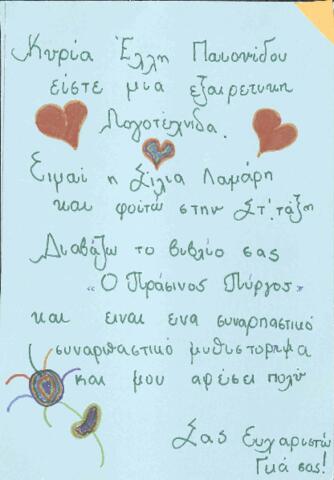 Κυρία Έλλη Παιονίδου
είστε μια εξαιρετικη
Λογοτέχνιδα.
Ειμαί η Σίλια Λαμάρη
και φοιτώ στην Στ'. τάξη
Διαβάζω το βιβλίο σας
"Ο Πράσινος Πύργος"
και ειναι ενα συναρπαστικό
συναρπαστικό μυθιστορημα
και μου αρέσει πολύ
Σας Ευχαριστώ
Γειά σας!